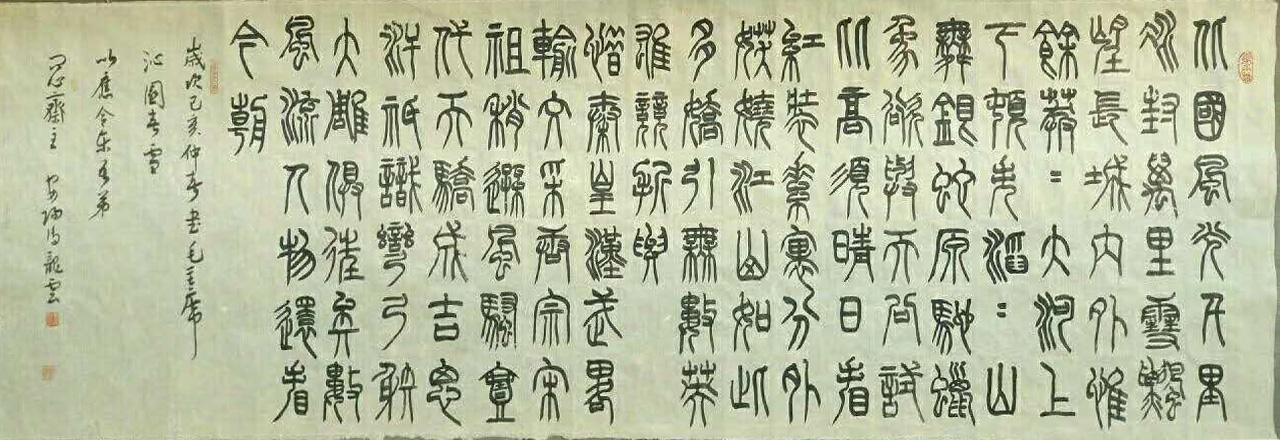 北國風光千里
冰封萬里雪飄
望長城內外惟
餘莽=大河上
下頓失滔=山
舞銀蛇原馳蠟
象欲與天公試
比高須晴日看
紅裝素裹分外
妖嬈江山如此
多嬌引無數英
雄競折要
惜秦皇漢武畧
輸文采唐宗宋
祖稍遜風騷壹
代天驕成吉思
汗祇識彎弓射
大雕俱往矣數
風流人物還看
今朝
歲次己亥仲春書毛主席
沁園春雪
以應
齋主 龍雲